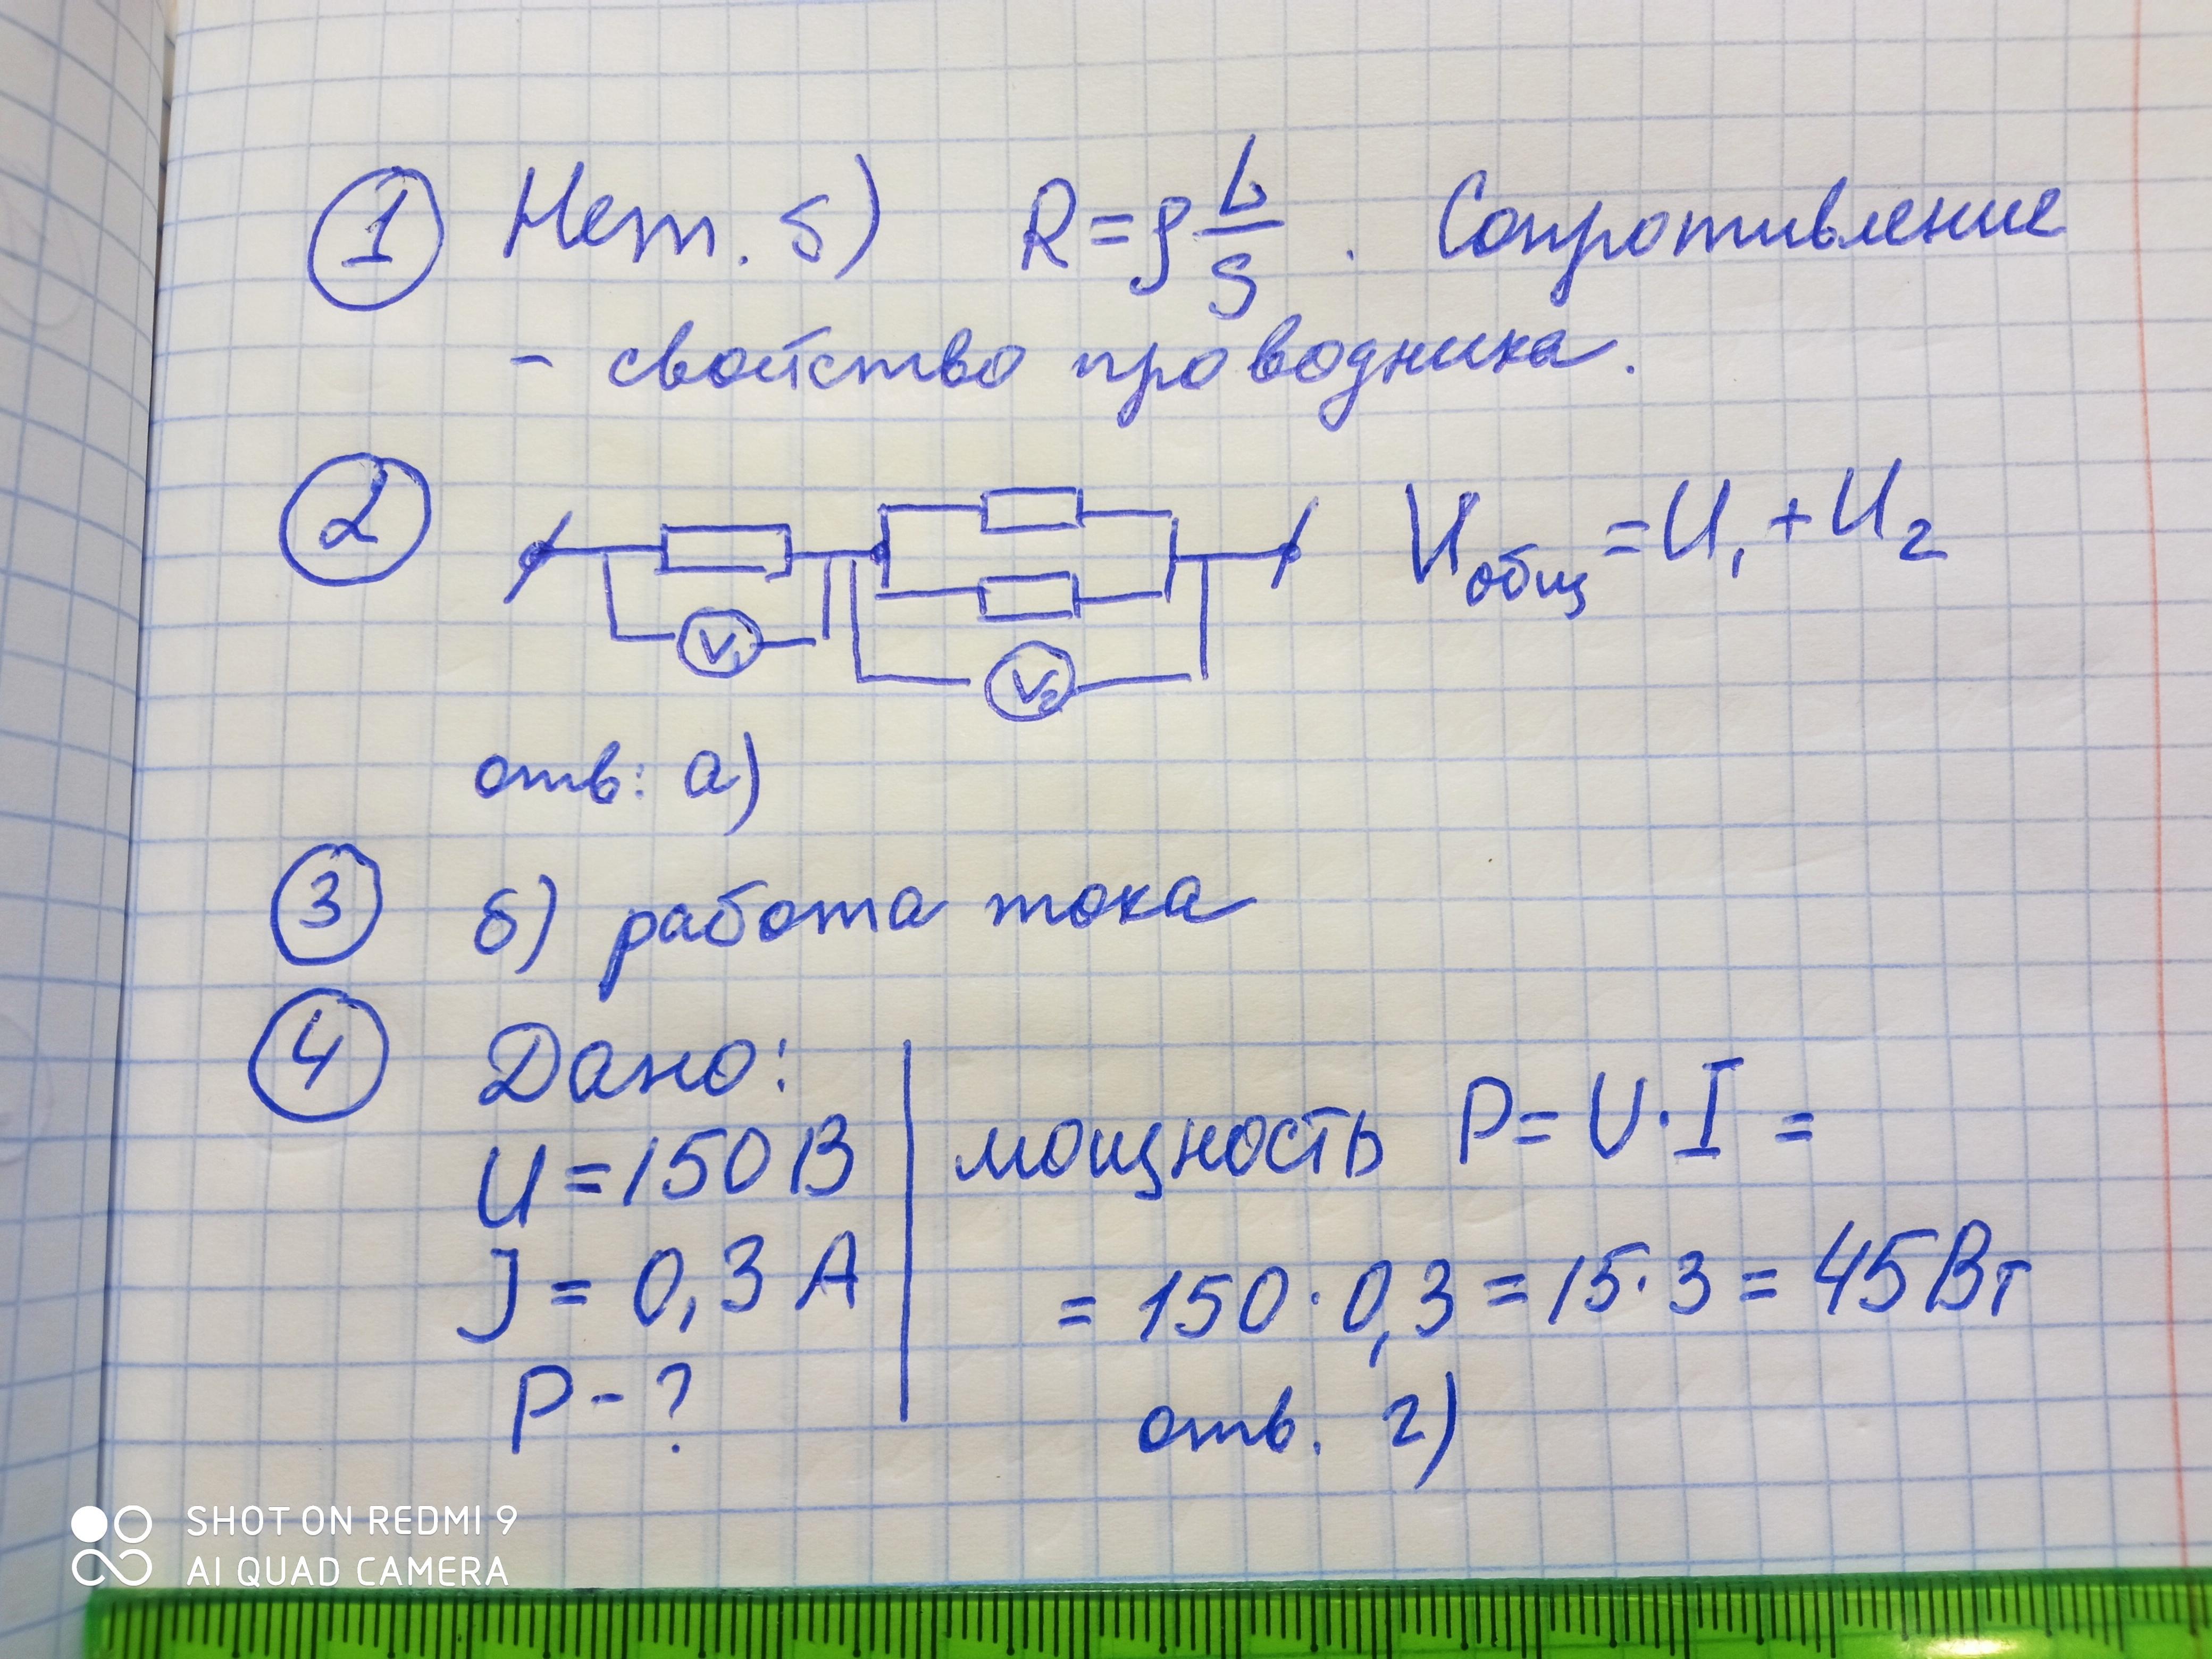 1 Нет. б) R=ρ L/S . Сопротивление
- свойство проводника.
2 Uобщ=U1+U2
V1 V2
отв: а)
3 б) работа тока
4 Дано:
U=150В
J=0,3А
P-?
мощность P=U·I=
=150·0,3=15·3=45Вт
отв. г)
SHOT ON REDMI 9
AI QUAD CAMERA